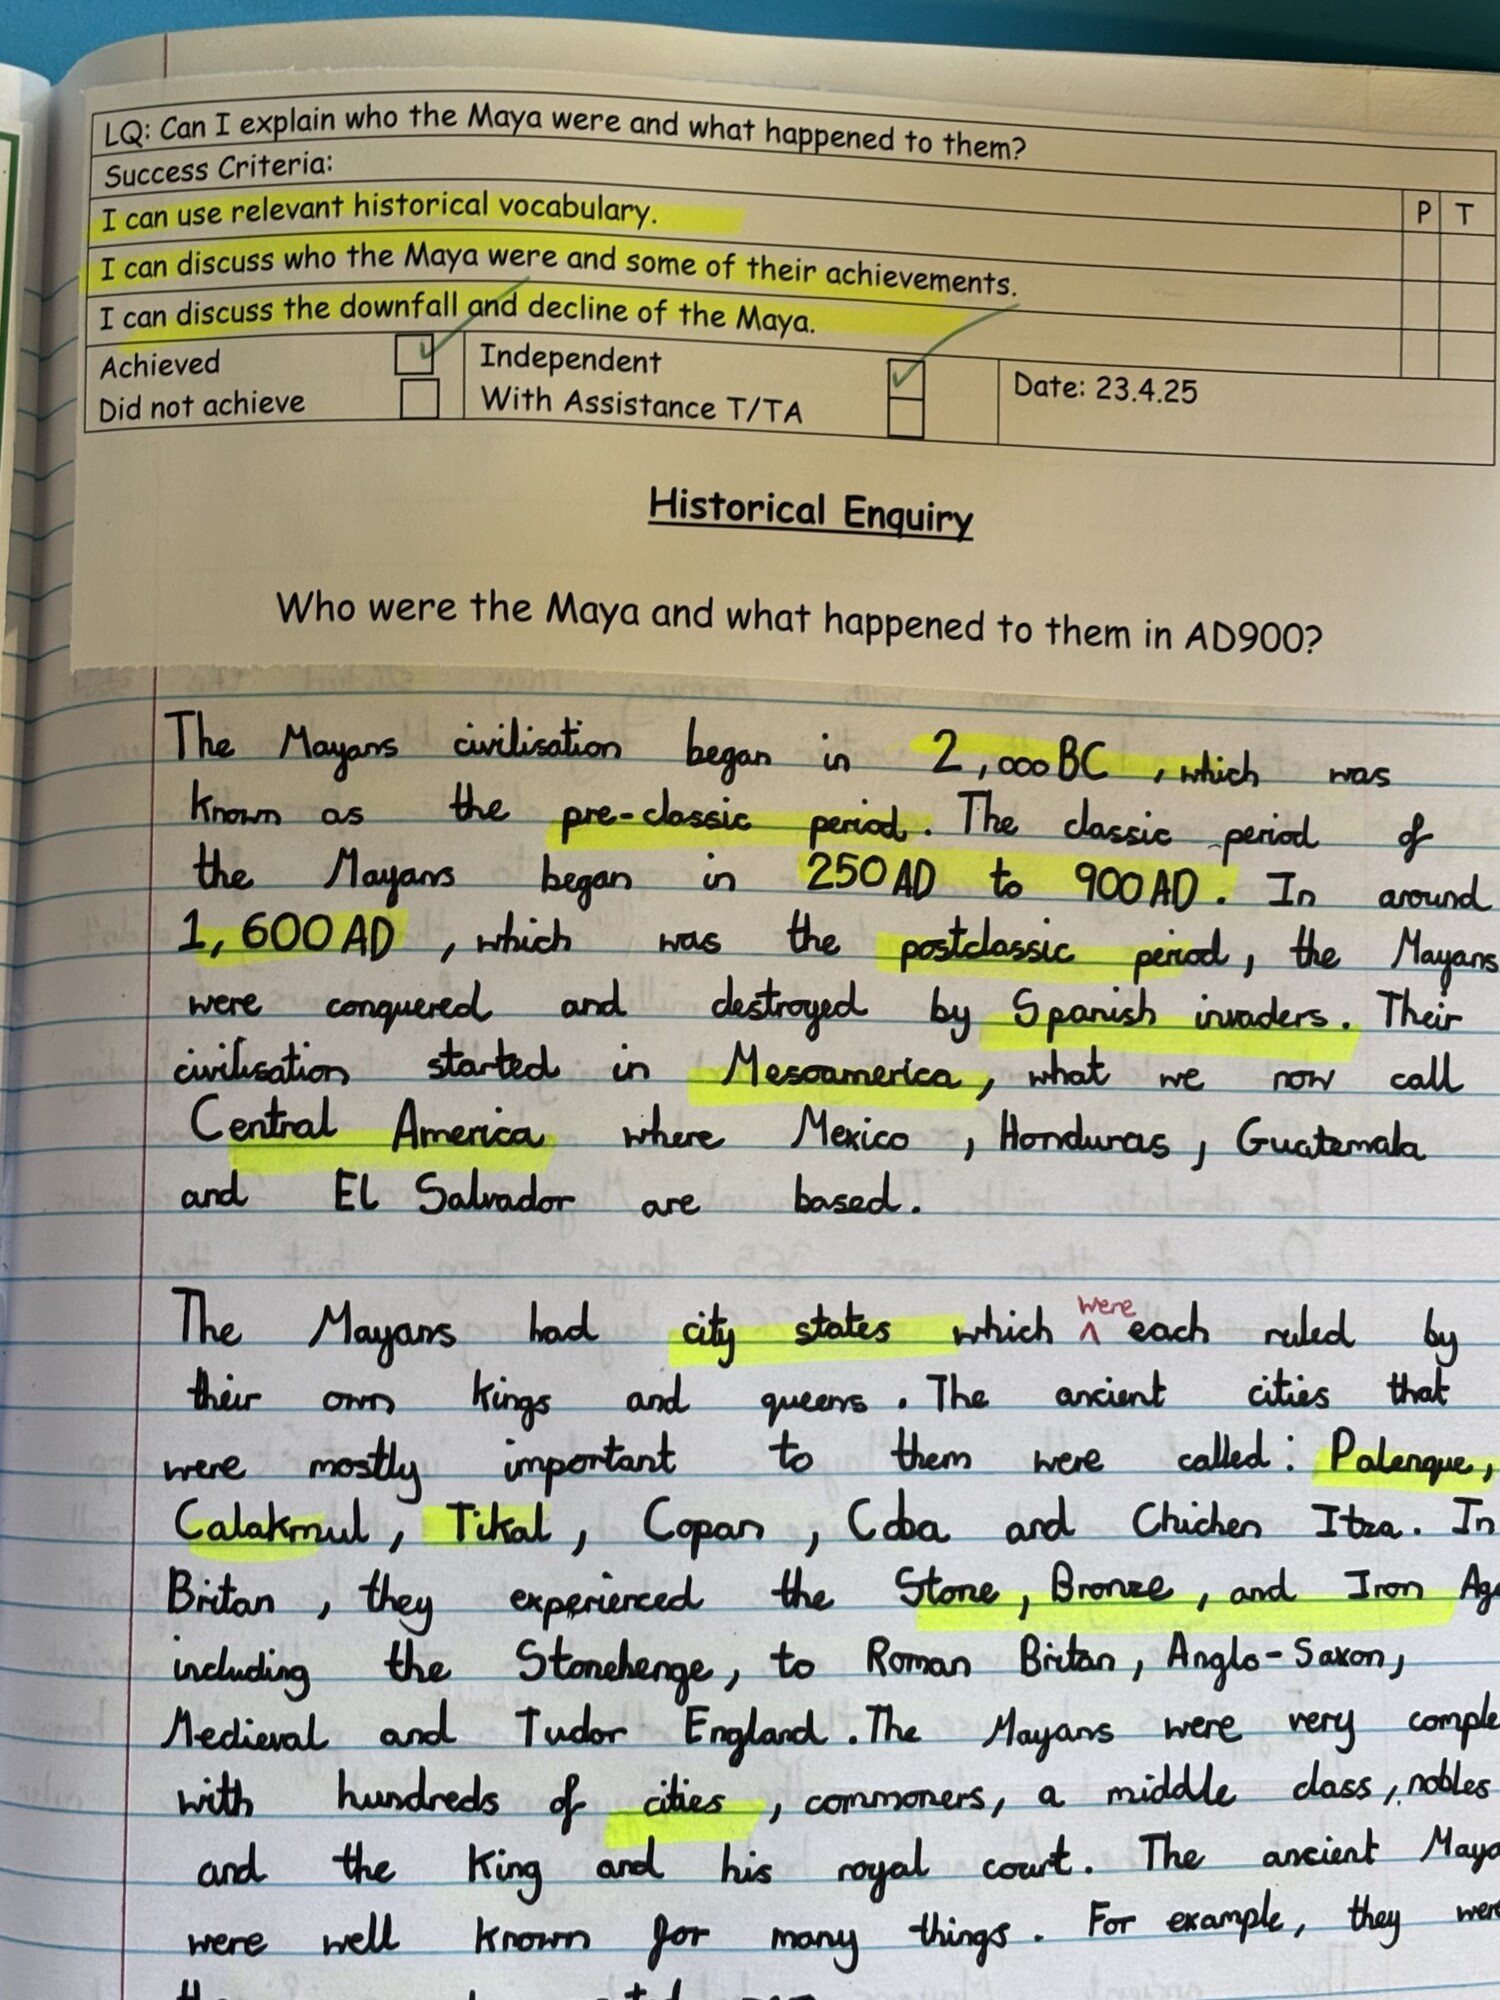 LQ: Can I explain who the Maya were and what happened to them?
Success Criteria:
I can use relevant historical vocabulary.
P T
I can discuss who the Maya were and some of their achievements.
I can discuss the downfall and decline of the Maya.
Achieved
Independent
Date: 23.4.25
Did not achieve
With Assistance T/TA
Historical Enquiry
Who were the Maya and what happened to them in AD900?
The Mayans civilisation began in 2,000BC, which was
known as the pre-classic period. The classic period of
the Mayans began in 250AD to 900AD. In around
1,600AD, which was the postclassic period, the Mayans
were conquered and destroyed by Spanish invaders. Their
civilisation started in Mesoamerica, what we now call
Central America where Mexico, Honduras, Guatemala
and El Salvador are based.
The Mayans had city states which were each ruled by
their own kings and queens. The ancient cities that
were mostly important to them were called: Palenque,
Calakmul, Tikal, Copan, Coba and Chichen Itza. In
Britan, they experienced the Stone, Bronze, and Iron Ag
including the Stonehenge, to Roman Britan, Anglo-Saxon,
Medieval and Tudor England. The Mayans were very comple
with hundreds of cities, commoners, a middle class, nobles
and the King and his royal court. The ancient Maya
were well known for many things. For example, they were